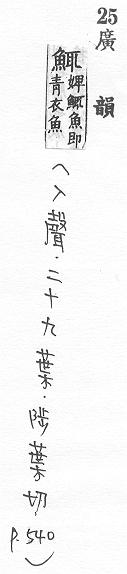 25廣韻
鮿婢鮿魚即青衣魚
(入聲·二十九葉·陟葉切 P.540)